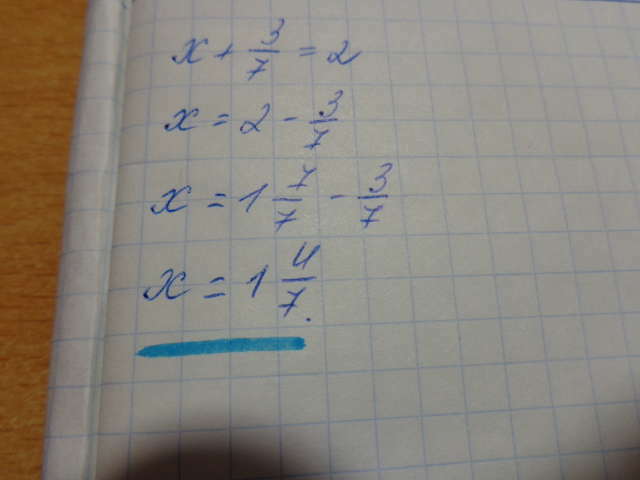 x + 3/7 = 2
x = 2 - 3/7
x = 1 7/7 - 3/7
x = 1 4/7.